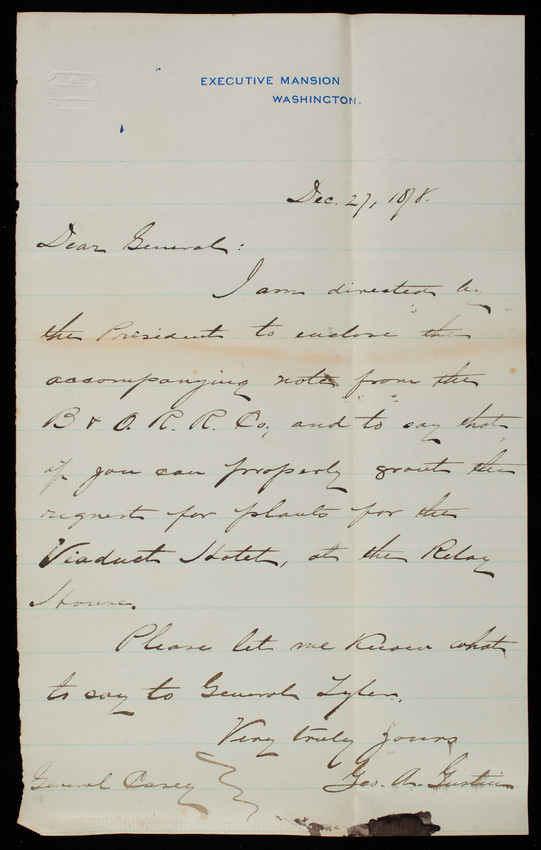 EXECUTIVE MANSION
WASHINGTON.
Dec. 27, 1878.
Dear General:
I am directed by
the President to enclose the
accompanying note from the
B & O. R. R. Co., and to say that
if you can properly grant the
request for plants for the
Viaduct Hotel, at the Relay
House.
Please let me know what
to say to General Tyler.
Very truly yours
Geo. A. Gustin
General Casey